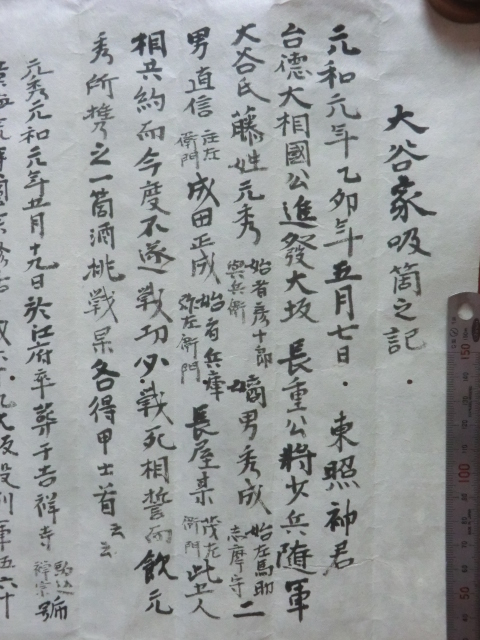 大谷家吸筒之記
元和元年乙卯年五月七日・東照神君
台徳大相國公進發大坂長重公將少兵随軍
大谷氏藤姓元秀始者彦十郎與兵衛嫡男秀成始左馬助志摩守二
男直信庄左衛門成田正成始者兵庫弥左衛門長屋某茂左衛門此五人
相共約而今度不遂戰功必戰死相誓而飲元
秀所携之一箇酒挑戰果各得甲士首云云
元秀元和元年五月十九日於江府卒葬于吉祥寺駒込禅宗号
150
100
50